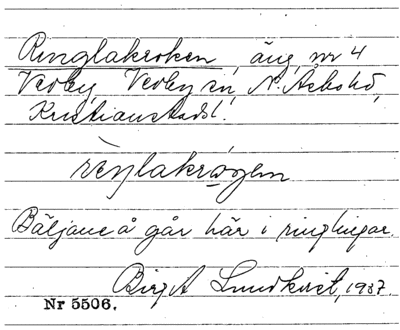 Ringlakroken, äng nr 4
Verby, Verby sn, N. Åsbo hd,
Kristianstads l.
rèŋlakrogen
Bäljane å går här i ringlingar.
Birg. A Lundkvist, 1937.
Nr 5506.